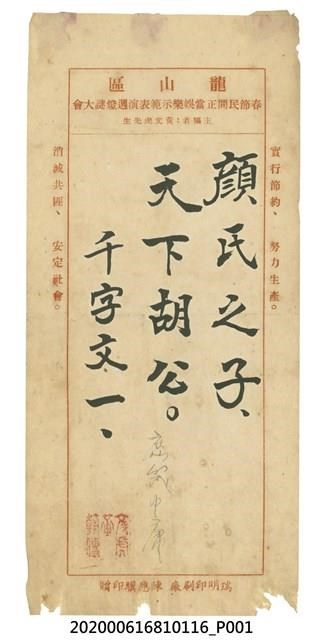 龍山區
春節民間正當娛樂示範表演週燈謎大會
主編者：黃文虎先生
實行節約、努力生產。
顏氏之子、
天下胡公。
千字文一、
消滅共匪、安定社會。
瑞明印刷廠 陳應騏印贈
202000616810116_P001